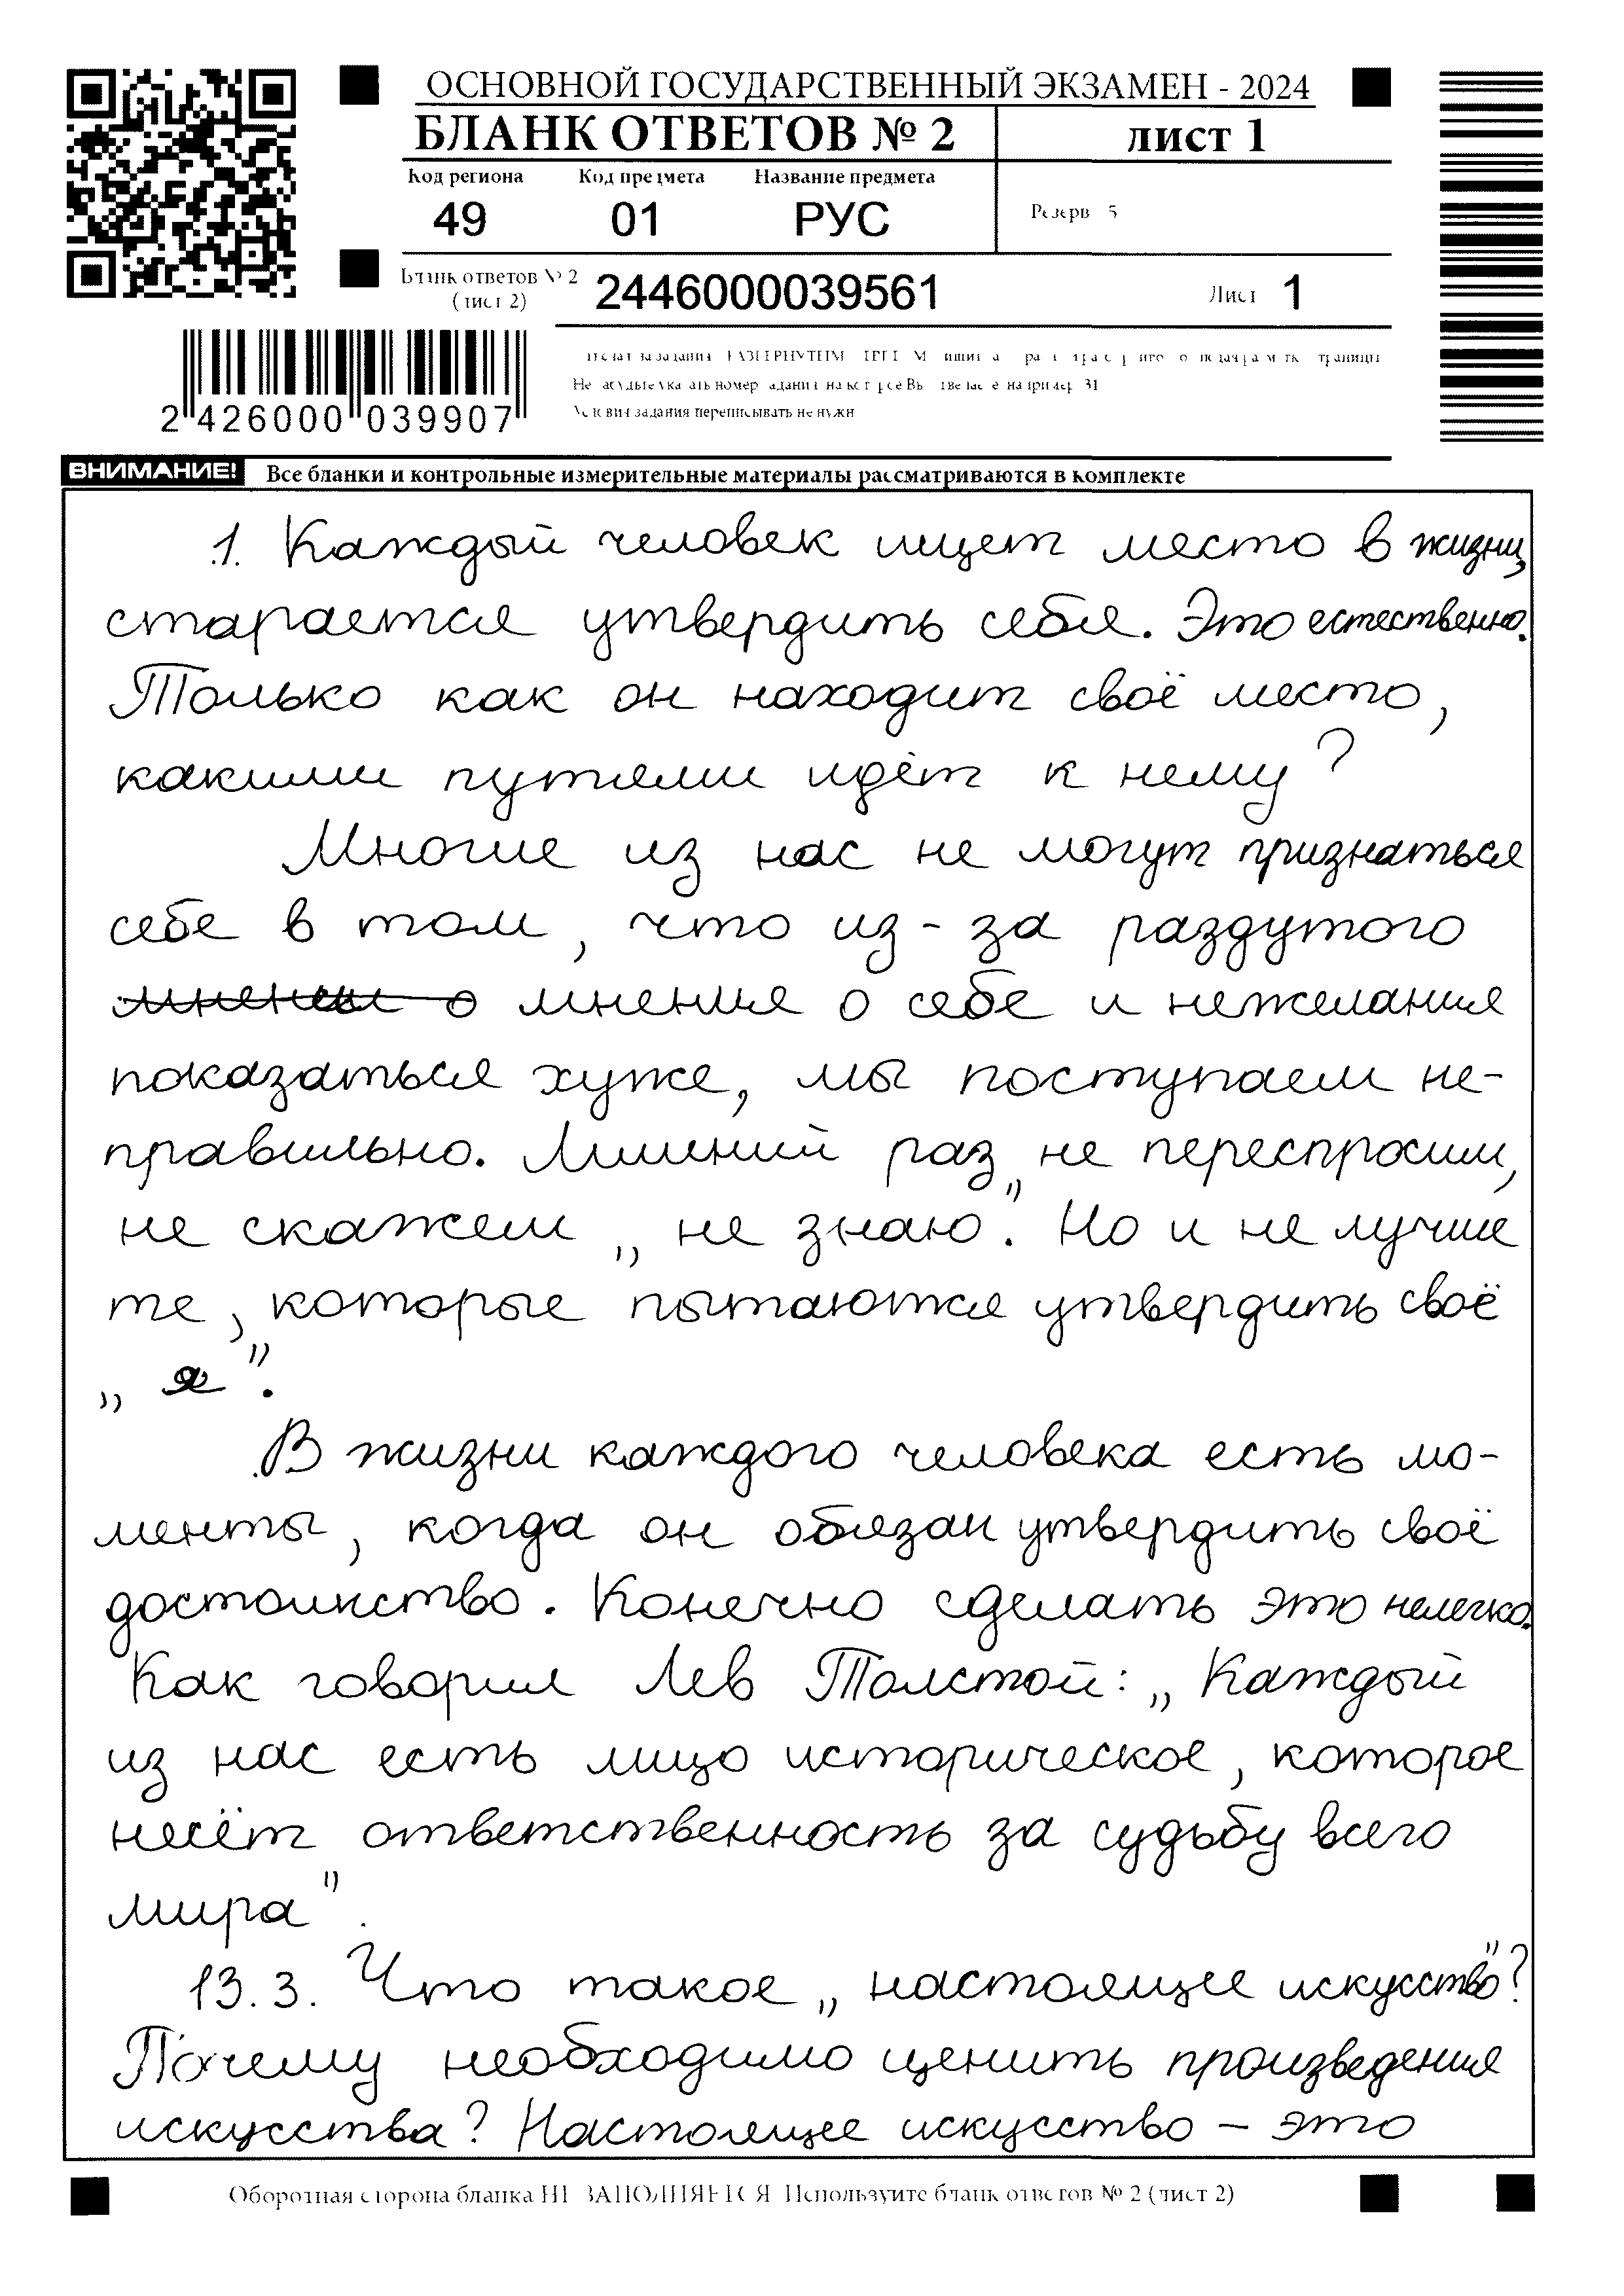 ОСНОВНОЙ ГОСУДАРСТВЕННЫЙ ЭКЗАМЕН - 2024
БЛАНК ОТВЕТОВ № 2
лист 1
Код региона
Код предмета
Название предмета
49
01
РУС
Резерв 5
Бланк ответов № 2
(лист 2)
2446000039561
Лист 1
2 426000 039907
Условия задания переписывать не нужн
ВНИМАНИЕ! Все бланки и контрольные измерительные материалы рассматриваются в комплекте
1. Каждый человек ищет место в жизни,
старается утвердить себя. Это естественно.
Только как он находит своё место,
какими путями идёт к нему?
Многие из нас не могут признаться
себе в том, что из-за раздутого
мнения о мнения о себе и нежелания
показаться хуже, мы поступаем не-
правильно. Лишний раз не переспросим,
не скажем „не знаю”. Но и не лучше
те, которые пытаются утвердить своё
„я”.
В жизни каждого человека есть мо-
менты, когда он обязан утвердить своё
достоинство. Конечно сделать это нелегко.
Как говорил Лев Толстой: „Каждый
из нас есть лицо историческое, которое
несёт ответственность за судьбу всего
мира”.
13.3. Что такое „настоящее искусство”?
Почему необходимо ценить произведения
искусства? Настоящее искусство – это
Оборотная сторона бланка НЕ ЗАПОЛНЯЕТСЯ. Используйте бланк ответов № 2 (лист 2)